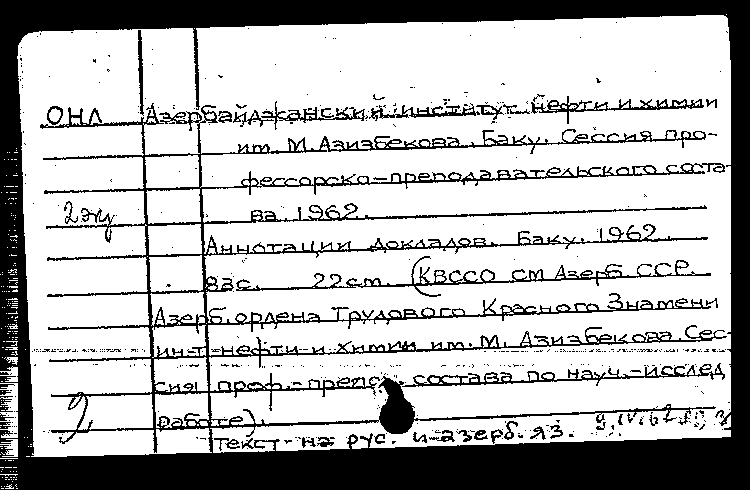 ОНЛ Азербайджанский институт нефти и химии
им. М. Азизбекова, Баку. Сессия про-
фессорско-преподавательского соста-
2жу ва. 1962.
Аннотации докладов. Баку. 1962.
83с. 22см. (КВССО СМ Азерб ССР.
Азерб. ордена Трудового Красного Знамени
ин-т нефти и химии им. М. Азизбекова. Сес-
сия проф.-препод. состава по науч.-исслед
2 работе).
Текст на рус. и азерб. яз. 9.IV.62